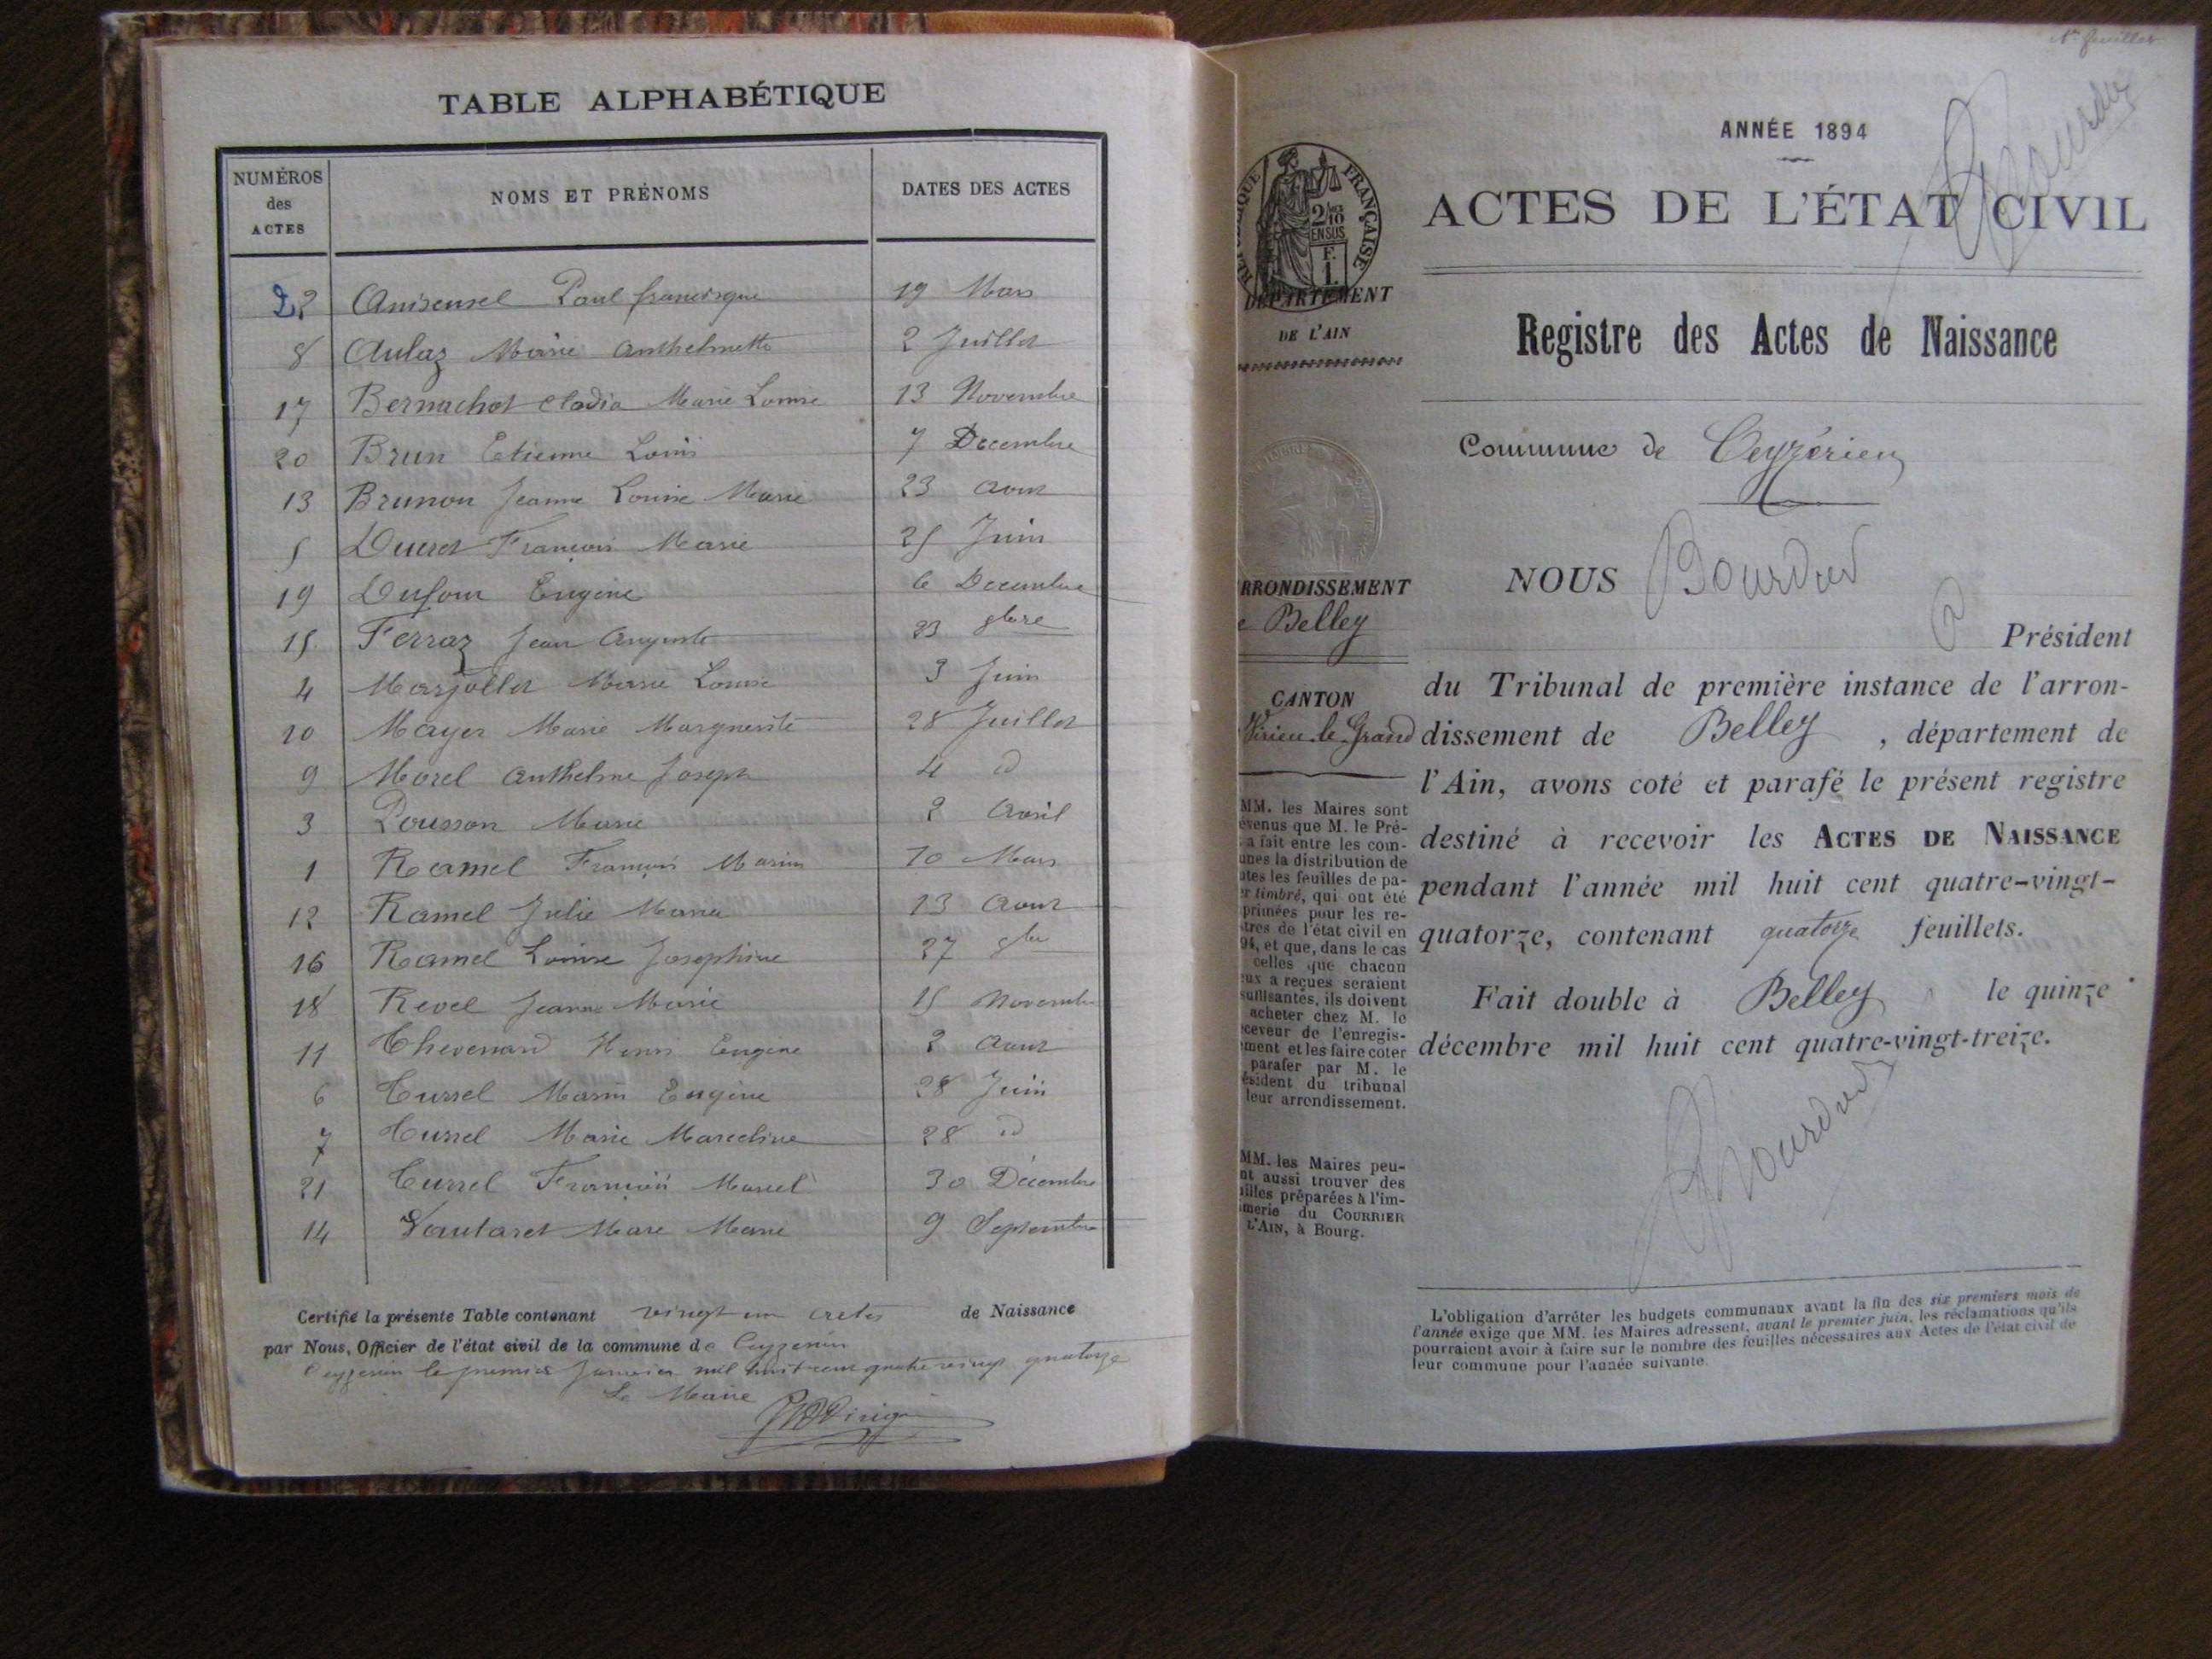 TABLE ALPHABÉTIQUE
NUMÉROS des ACTES
NOMS ET PRÉNOMS
DATES DES ACTES
2 Paul 19 Mars
8 Aulaz Marie Anthelmette 2 Juillet
17 Bernachot Clodia Marie Louise 13 Novembre
20 Brun Etienne Louis 7 Decembre
13 Brunon Jeanne Louise Marie 23 Aout
5 Ducret François Marie 25 Juin
19 Dufour Eugène 6 Decembre
15 Ferraz Jean Auguste 23 9bre
4 Marjollet Marie Louise 3 Juin
10 Mayer Marie Marguerite 28 Juillet
9 Morel Anthelme Joseph 4 id
3 Pousson Marie 2 Avril
1 Ramel François Marius 10 Mars
12 Ramel Julie Maria 13 Aout
16 Ramel Louise Josephine 27
18 Revel Jeanne Marie 15 Novembre
11 Thevenard Henri Eugene 2 Aout
6 Tussel Eugène 28 Juin
7 Tussel Marie Marceline 28 id
21 Tussel François Marcel 30 Décembre
14 Vautaret Marie 9 Septembre
Certifié la présente Table contenant vingt un actes de Naissance
par Nous, Officier de l'état civil de la commune de Ceyzerieu
Ceyzerieu le premier Janvier mil huit cent quatre vingt quatorze
Le Maire
ANNÉE 1894
ACTES DE L'ÉTAT CIVIL
RÉPUBLIQUE FRANÇAISE
2/10 EN SUS
F. 1.
DÉPARTEMENT
DE L'AIN
Registre des Actes de Naissance
Commune de Ceyzérieu
NOUS Bourdin
Président
RRONDISSEMENT
e Belley
CANTON
Virieu-le-Grand
du Tribunal de première instance de l'arron-
dissement de Belley , département de
l'Ain, avons coté et parafé le présent registre
destiné à recevoir les ACTES DE NAISSANCE
pendant l'année mil huit cent quatre-vingt-
quatorze, contenant quatorze feuillets.
Fait double à Belley le quinze
décembre mil huit cent quatre-vingt-treize.
MM. les Maires sont
évenus que M. le Pré-
a fait entre les com-
unes la distribution de
utes les feuilles de pa-
er timbré, qui ont été
primées pour les re-
tres de l'état civil en
94, et que, dans le cas
celles que chacun
eux a reçues seraient
suffisantes, ils doivent
acheter chez M. le
ceveur de l'enregis-
ement et les faire coter
parafer par M. le
ésident du tribunal
leur arrondissement.
MM. les Maires peu-
nt aussi trouver des
illes préparées à l'im-
imerie du COURRIER
L'AIN, à Bourg.
L'obligation d'arrêter les budgets communaux avant la fin des six premiers mois de
l'année exige que MM. les Maires adressent, avant le premier juin, les réclamations qu'ils
pourraient avoir à faire sur le nombre des feuilles nécessaires aux Actes de l'état civil de
leur commune pour l'année suivante.